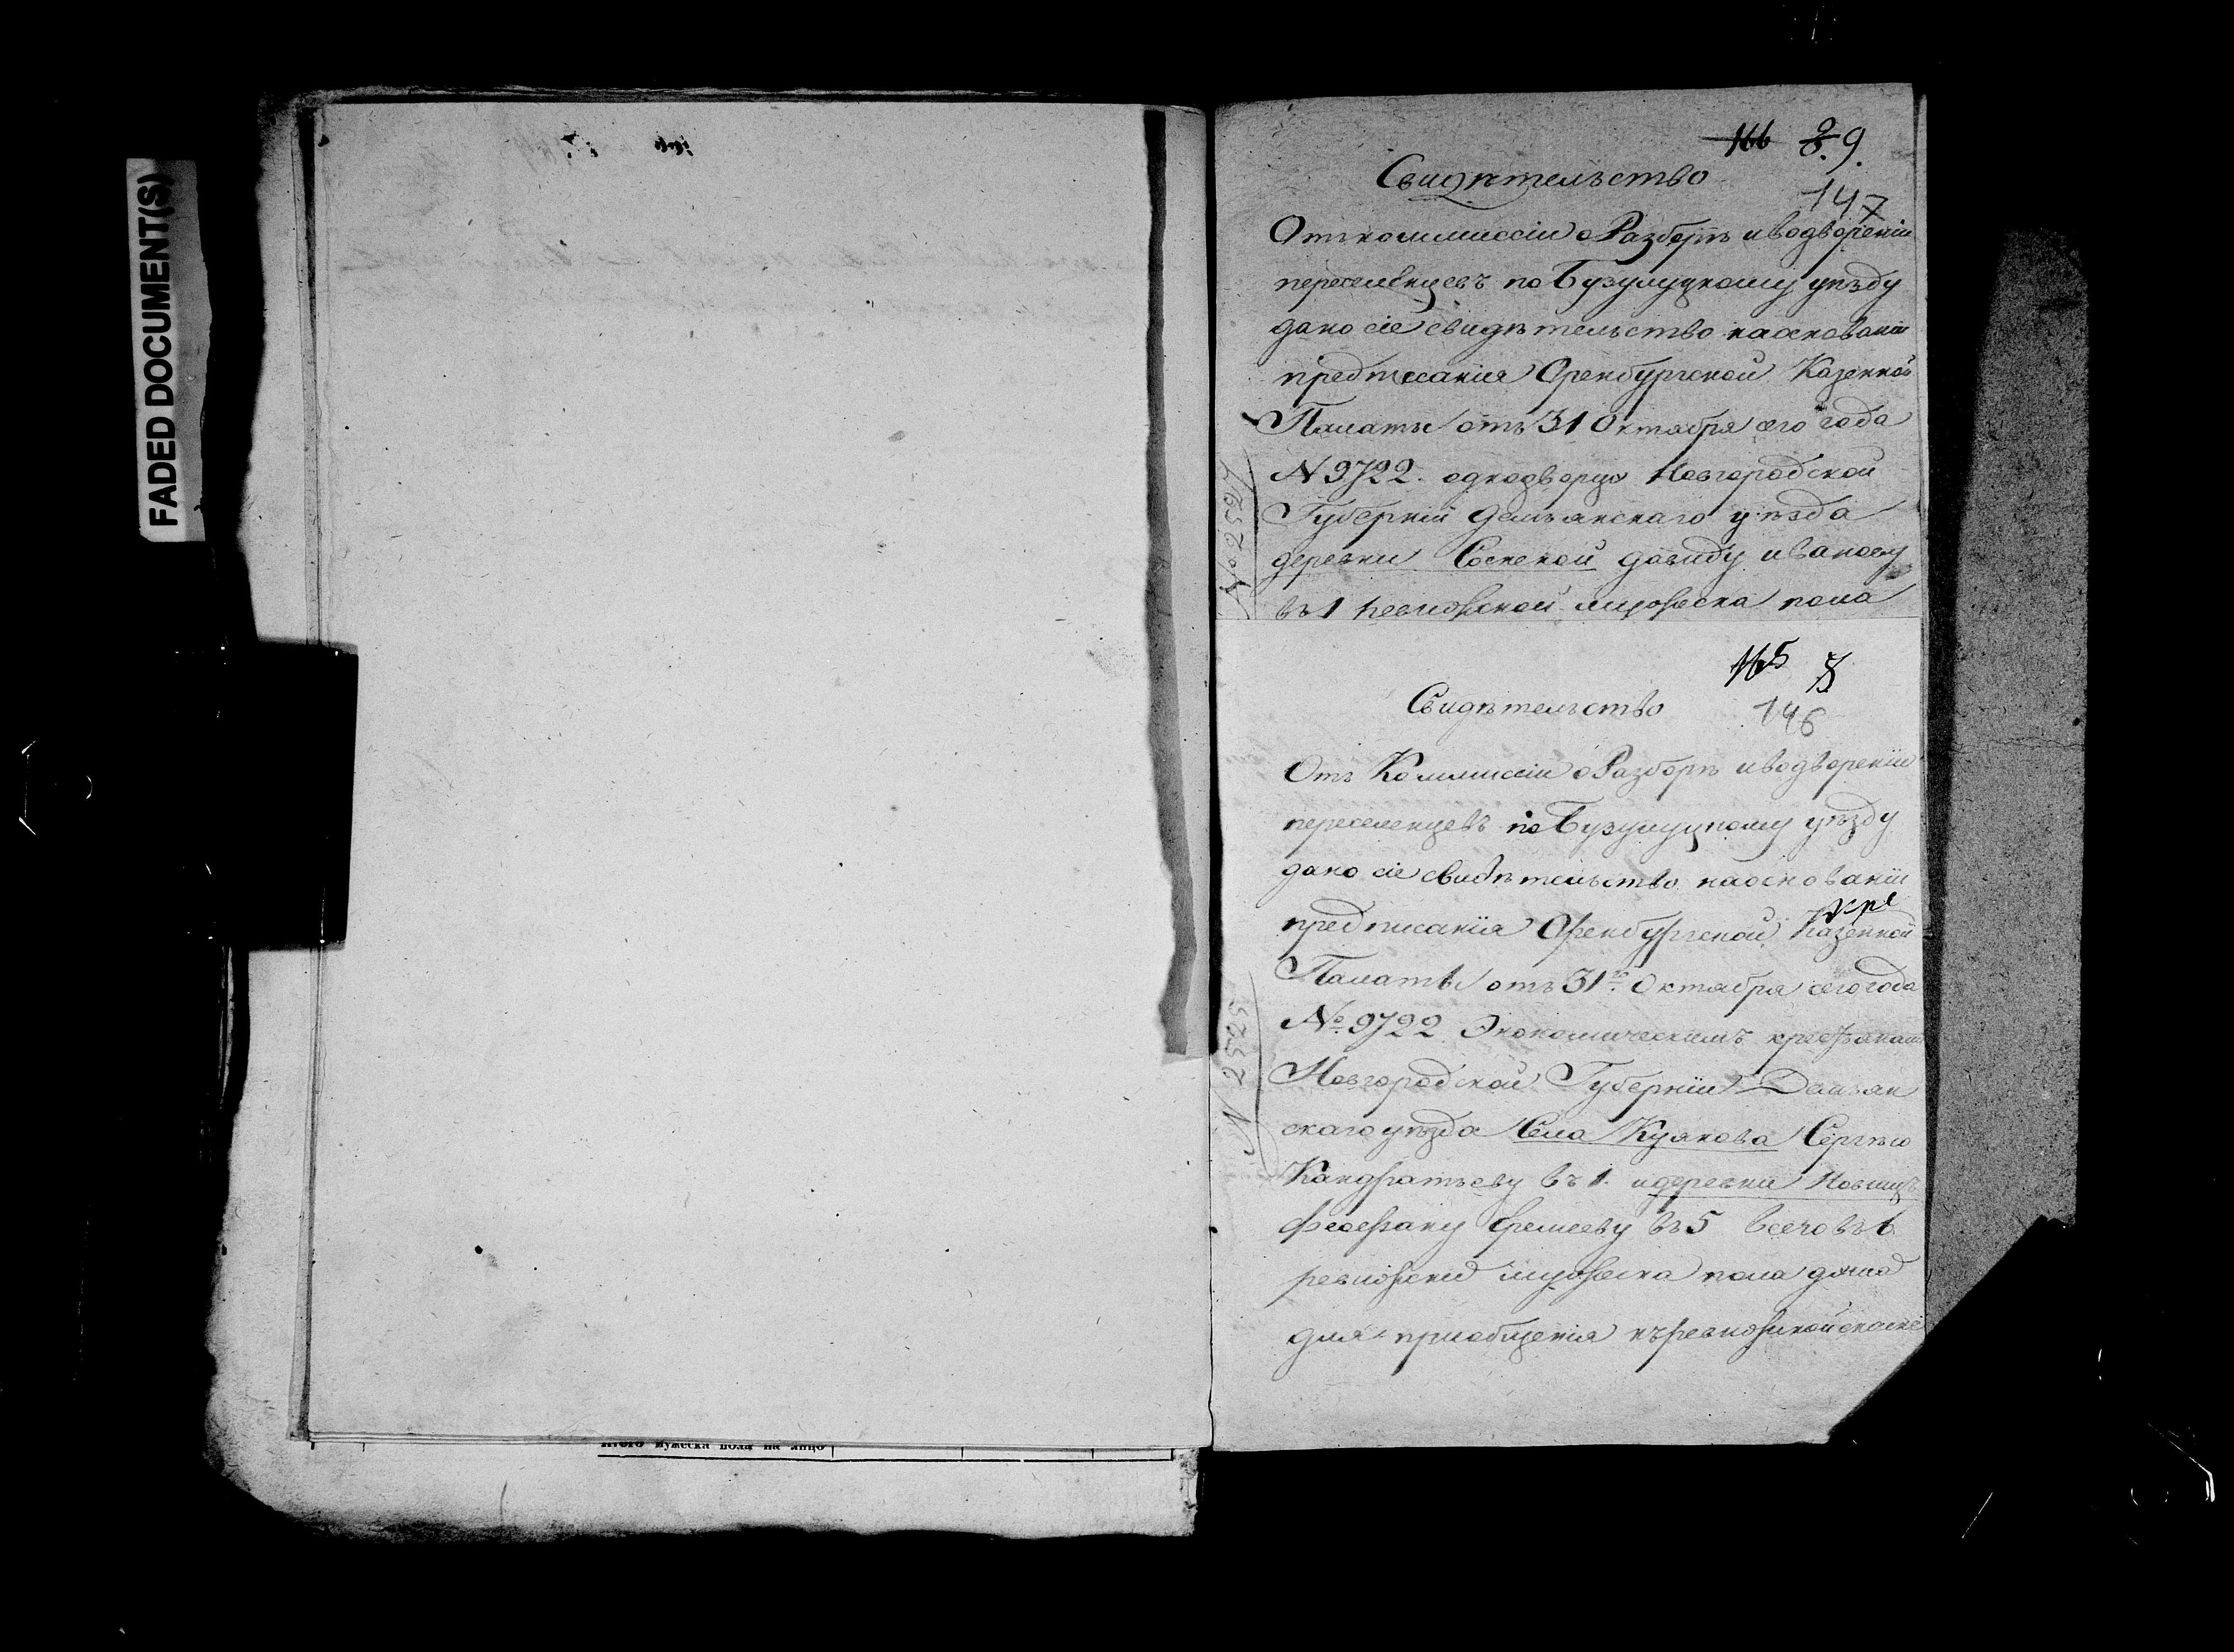 FADED DOCUMENT(S)
166 8. 9.
Свидѣтельство
147
Отъ коммиссіи о Разборѣ и водвореніи
переселенцевъ по Бузулуцкому уѣзду
дано сіе свидѣтельство на основаніи
предписанія Оренбургской Казенной
Палаты отъ 31 Октября сего года
N 9722. однодворцу Новгородской
Губерніи демьянскаго уѣзда
деревни Соснской давиду иванову
въ 1 ревижской мужеска пола
№ 2527
165 8
Свидѣтельство
146
Отъ Коммиссіи о Разборѣ и водвореніи
переселенцевъ по Бузулуцкому уѣзду
дано сіе свидѣтельство на основаніи
предписанія Оренбургской Казенной
Палаты отъ 31го Октября сего года
№ 9722 Экономическимъ крестьянамъ
Новгородской Губерніи Демьян
скаго уѣзда Села Куякова Сергѣю
Кандратьеву въ 1. и деревни
феофану Еремееву въ 5 всего въ 6
ревижски мужеска пола душа
для приобщенія къ ревижской сказкѣ
N 2525
Итого мужеска пола на лицо